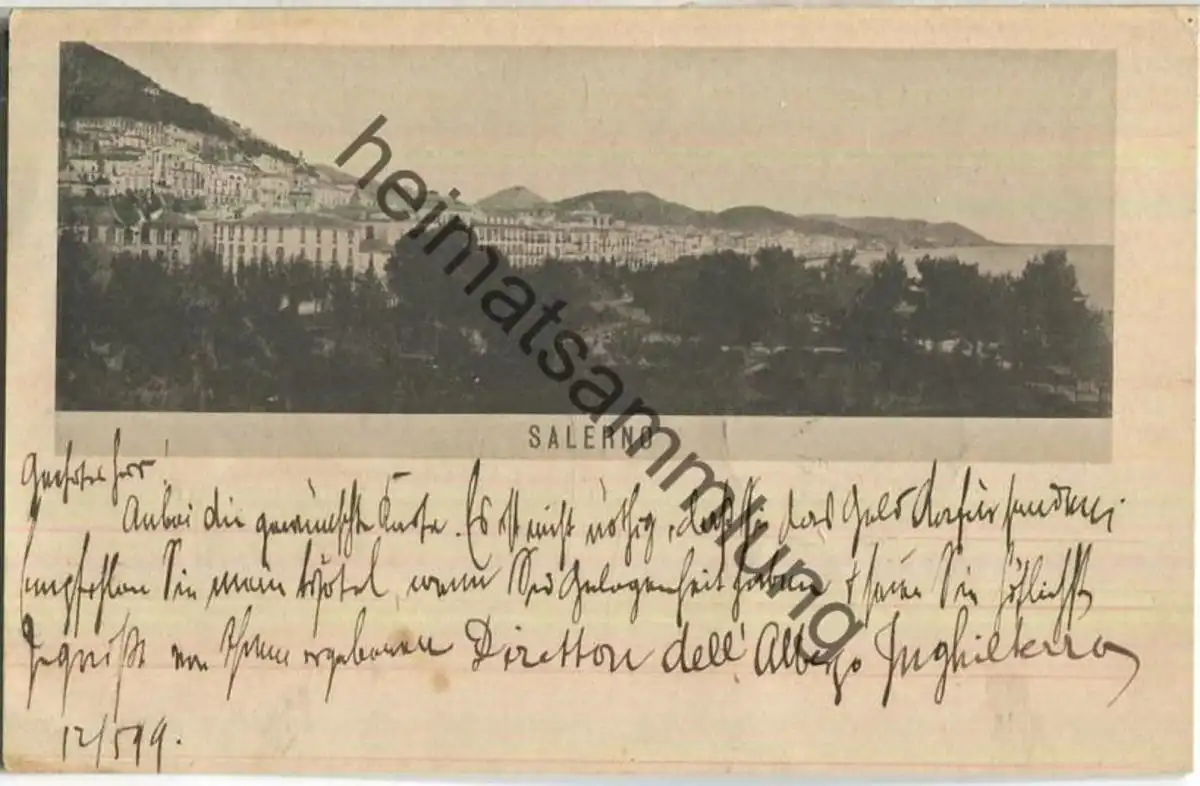 SALERNO
heimatsammlung
Geehrter Herr!
Anbei die gewünschte Karte. Es ist nicht nöthig, daß Sie das Geld dafür senden;
empfehlen Sie mein Hôtel, wenn Sie Gelegenheit haben & seien Sie höflichst
gegrüßt von Ihrem ergebenen Direttore dell' Albergo Inghilterra
12/5 99.